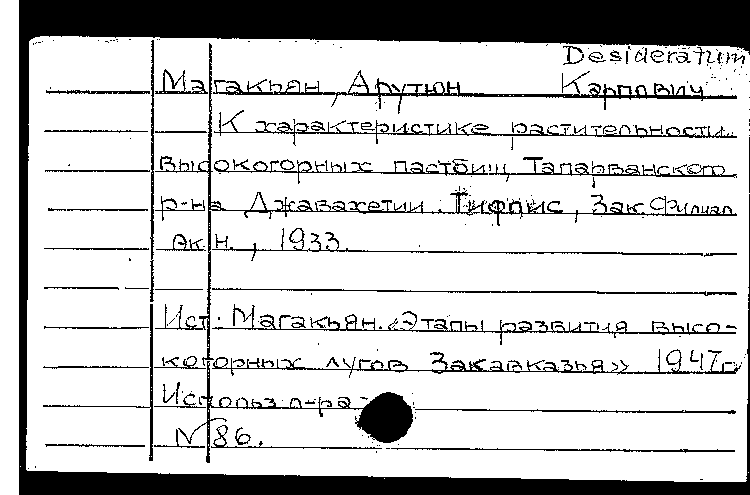 Desideratum
Магакьян, Арутюн Карпович
К характеристике растительности
высокогорных пастбищ Тапарванского
р-на Джавахетии. Тифлис, Зак. Филиал
Ак. Н., 1933.
Ист: Магакьян. «Этапы развития высо-
когорных лугов Закавказья» 1947г.
Использ л-ра
№ 86.